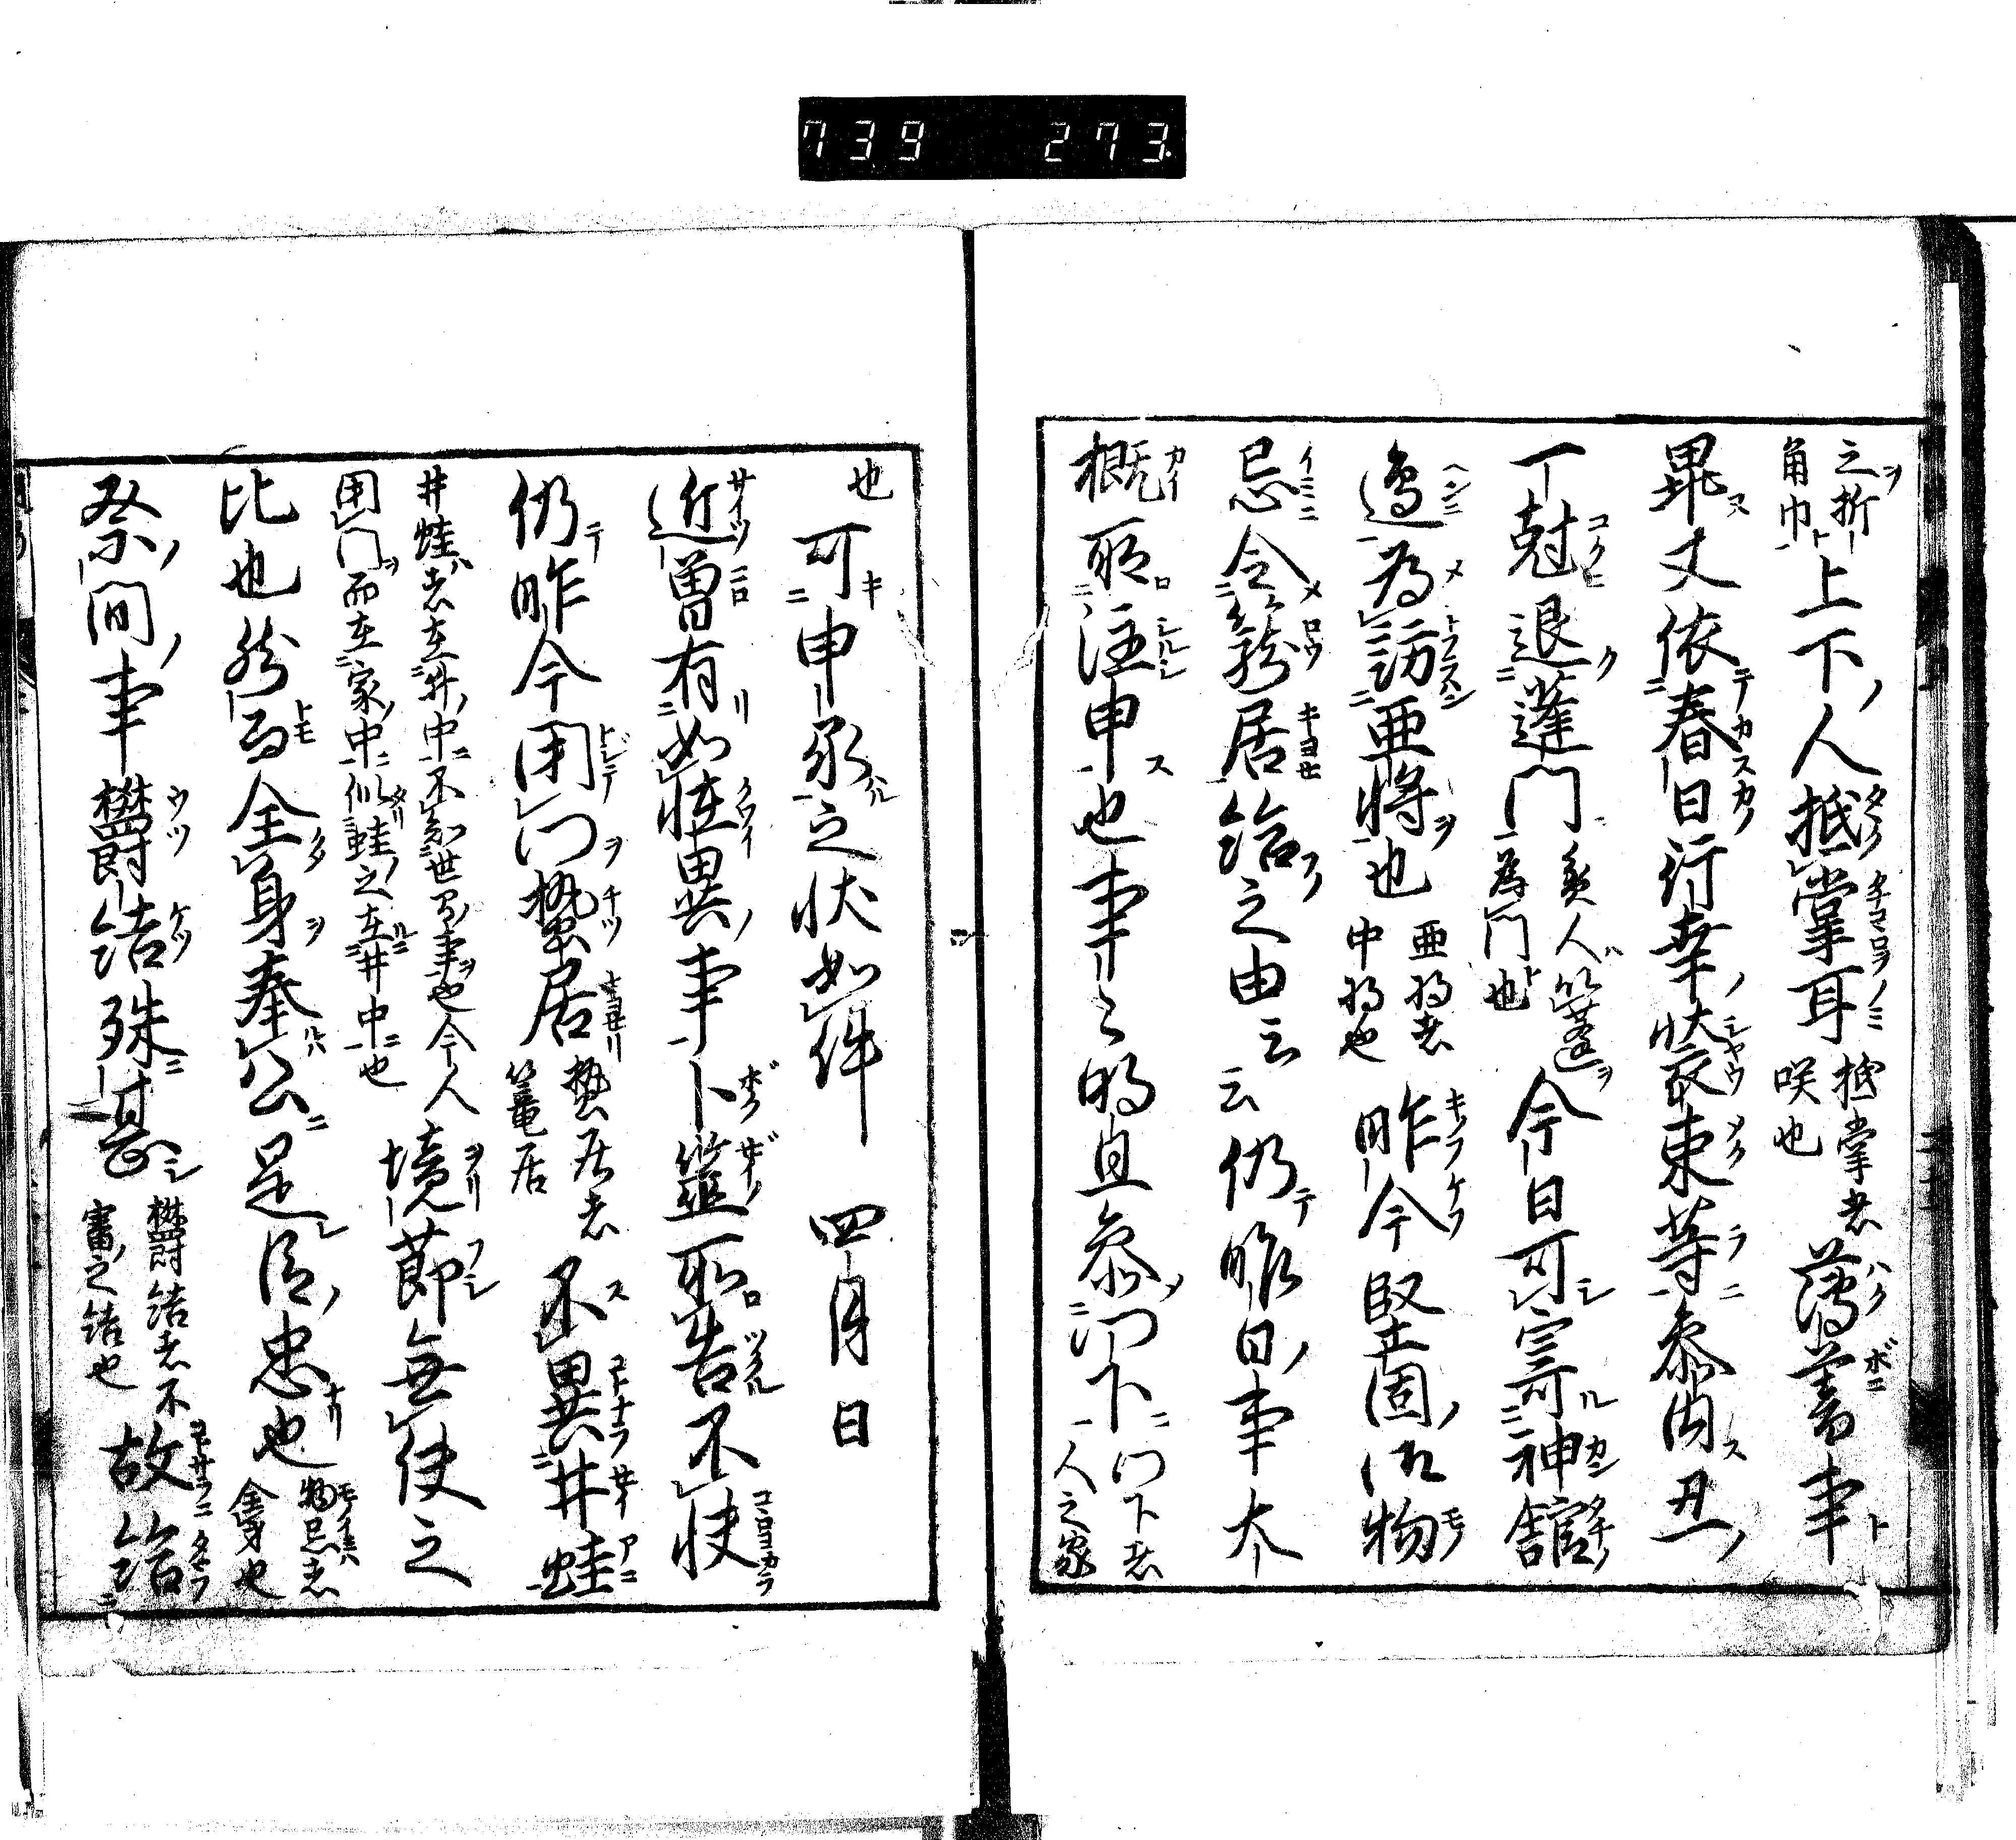 739 273
之折角巾上下人抵掌耳抵掌者咲也薄暮事
畢丈依春日行幸装束等参内丑
丁尅退蓬門貧人以蓬為門也今日可寄神舘
邊為訪亜将也亜将者中将也昨今堅固御物
忌令籠居給之由云云仍昨日事大
概所注申也事〻明旦参門下門下者人之家
也可申承之状如件 四月 日
近曽有如恠異事卜筮所告不快
仍昨今閇門蟄居蟄居者篭居不異井蛙
井蛙者在井中不知世間事也今人閇門而在家中似蛙之在井中也境莭無使之
比也然而全身奉公是臣忠也物忌者全身也
祭間事欝結殊甚欝結者不審之結也故給